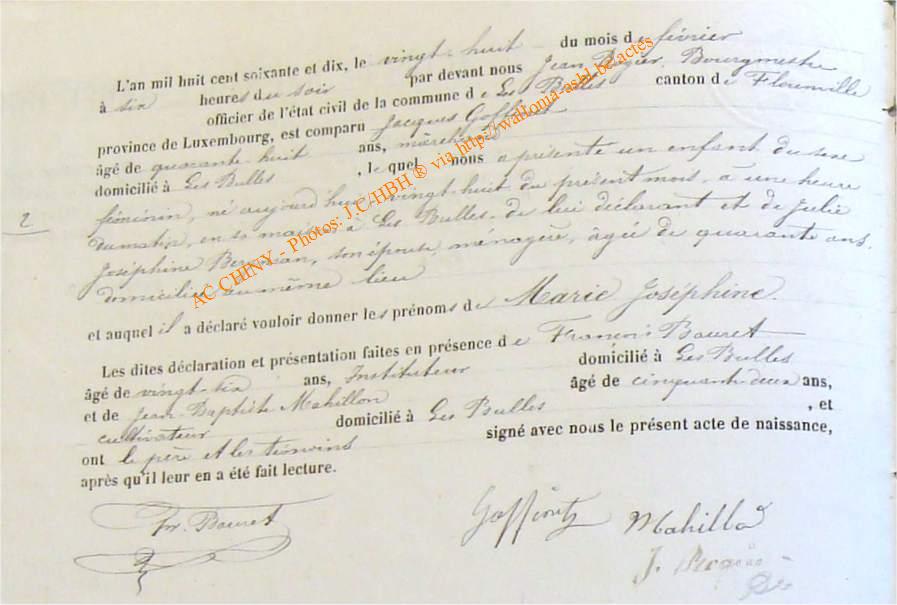 L'an mil huit cent soixante et dix, le vingt-huit du mois de février
à six heures du soir par devant nous Jean Bourgmestre
officier de l'état civil de la commune de Les Bulles canton de Florenville
province de Luxembourg, est comparu Jacques
âgé de quarante-huit ans,
domicilié à Les Bulles, lequel nous a présenté un enfant du sexe
2
féminin, né aujourd'hui vingt-huit du présent mois, à une heure
du matin, en sa maison à Les Bulles, de lui déclarant et de Julie
Joséphine son épouse, ménagère, âgée de quarante ans,
domiciliée au même lieu
et auquel il a déclaré vouloir donner les prénoms de Marie Joséphine.
Les dites déclaration et présentation faites en présence de François Bouret
âgé de vingt-six ans, Instituteur domicilié à Les Bulles
et de Jean-Baptiste Mahillon âgé de cinquante-deux ans,
cultivateur domicilié à Les Bulles, et
ont le père et les témoins signé avec nous le présent acte de naissance,
après qu'il leur en a été fait lecture.
Fr. Bouret
Goffinet
Mahillon
J.
AC CHINY - Photos: J.C HBH ® via http://wallonia-asbl.be/actes